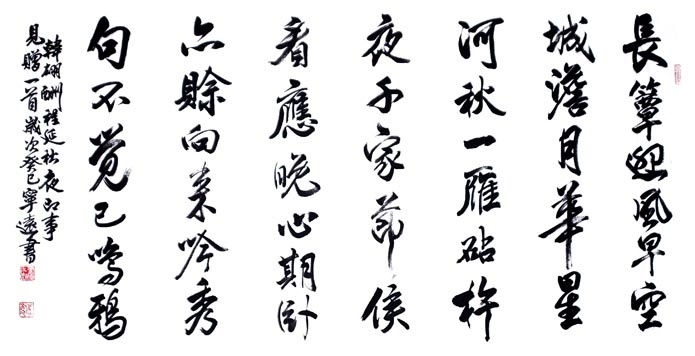 長簟迎風早空
城澹月華星
河秋一雁砧杵
夜千家節候
看應晚心期臥
亦賒向來吟秀
句不覺已鳴鴉
韓翃酬程延秋夜即事
見贈一首歲次癸巳寧遠書